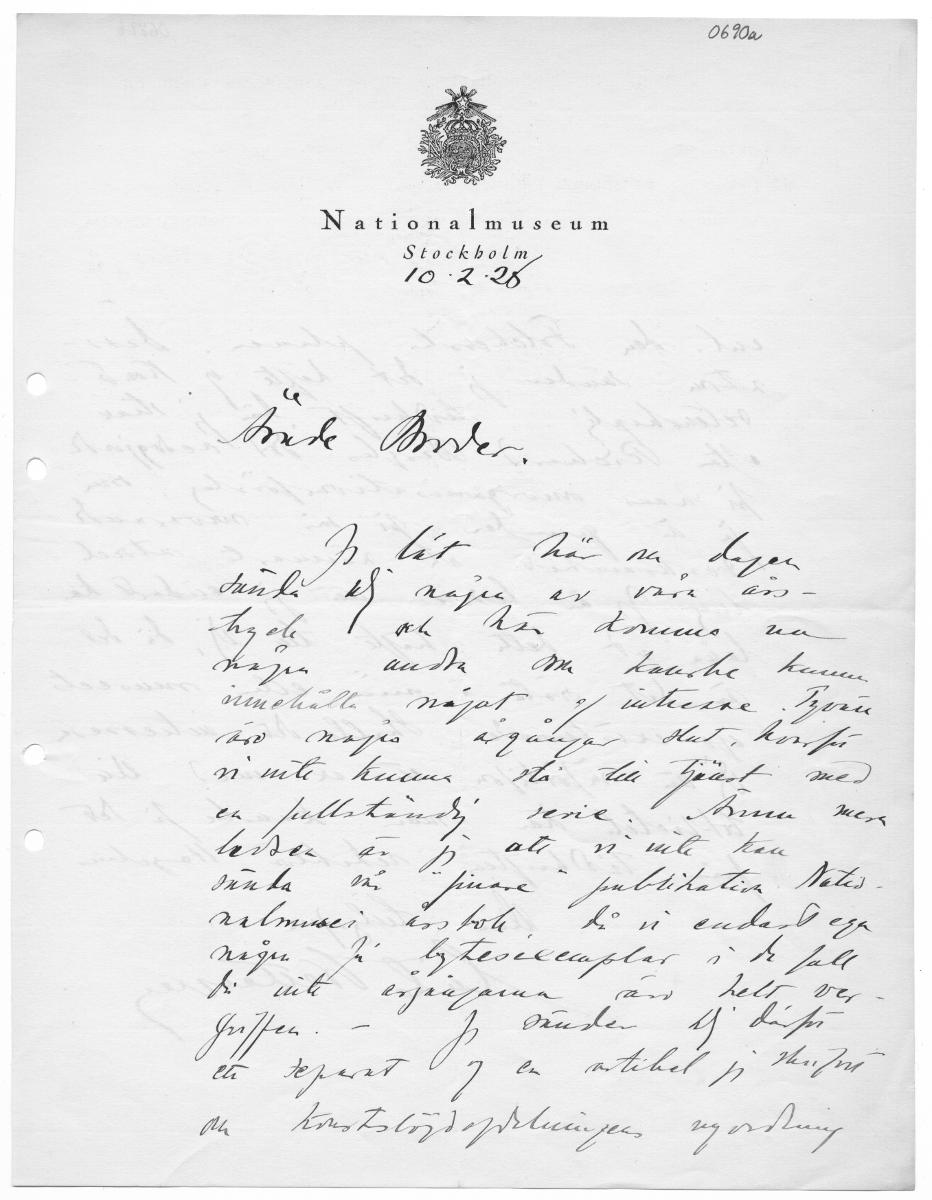 0690a
Nationalmuseum
Stockholm
10.2.28
Ärade Broder.
Jg lät här om dagen
sända dig några av våra års-
tryck och här komma nu
några andra som kanske kunna
innehålla något af intresse. Tyvärr
äro några årgångar slut, hvarför
vi inte kunna stå till tjänst med
en fullständig serie. Ännu mera
ledsen är jg att vi inte kan
sända vår "finare" publikation Natio-
nalmusei årsbok då vi endast ega
några få bytesexemplar i de fall
då inte årgångarna äro helt ver-
griffen. – Jg sänder dig därför
ett separat af en artikel jg skrifvit
om konstslöjdafdelningens nyordning